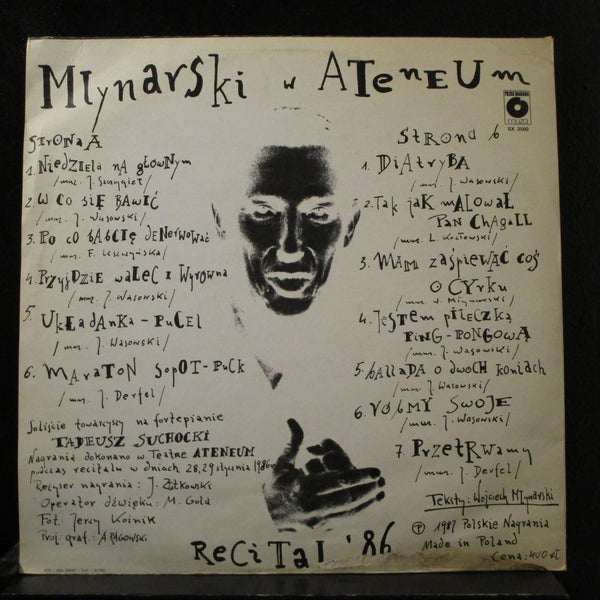 Młynarski w Ateneum
POLSKIE NAGRANIA
muza
SX 2500
Strona A
1. Niedziela na głównym
/muz. J. Szczygieł/
2. W co się bawić
/muz. J. Wasowski/
3. Po co babcię denerwować
/muz. F. Leszczyńska/
4. Przyjdzie walec i wyrówna
/muz. J. Wasowski/
5. Układanka - pucel
/muz. J. Wasowski/
6. Maraton Sopot - Puck
/muz. J. Derfel/
Soliście towarzyszy na fortepianie
Tadeusz Suchocki
Nagrania dokonano w Teatrze ATENEUM
podczas recitalu w dniach 28, 29 stycznia 1986r
Reżyser nagrania: J. Złotkowski
Operator dźwięku: M. Gola
Fot. Jerzy Kośnik
Proj. graf.: A. Pągowski
Strona b
1. Diatryba
/muz. J. Wasowski/
2. Tak jak malował
Pan Chagall
/muz. L. Kozłowski/
3. Mam zaśpiewać coś
o cyrku
/muz. W. Młynarski/
4. Jestem piłeczką
ping-pongową
/muz. J. Wasowski/
5. Ballada o dwóch koniach
/muz. J. Wasowski/
6. Róbmy swoje
/muz. J. Wasowski/
7. Przetrwamy
/muz. J. Derfel/
Teksty: Wojciech Młynarski
Ⓟ 1987 Polskie Nagrania
Made in Poland
Cena: 400 zł
Recital '86